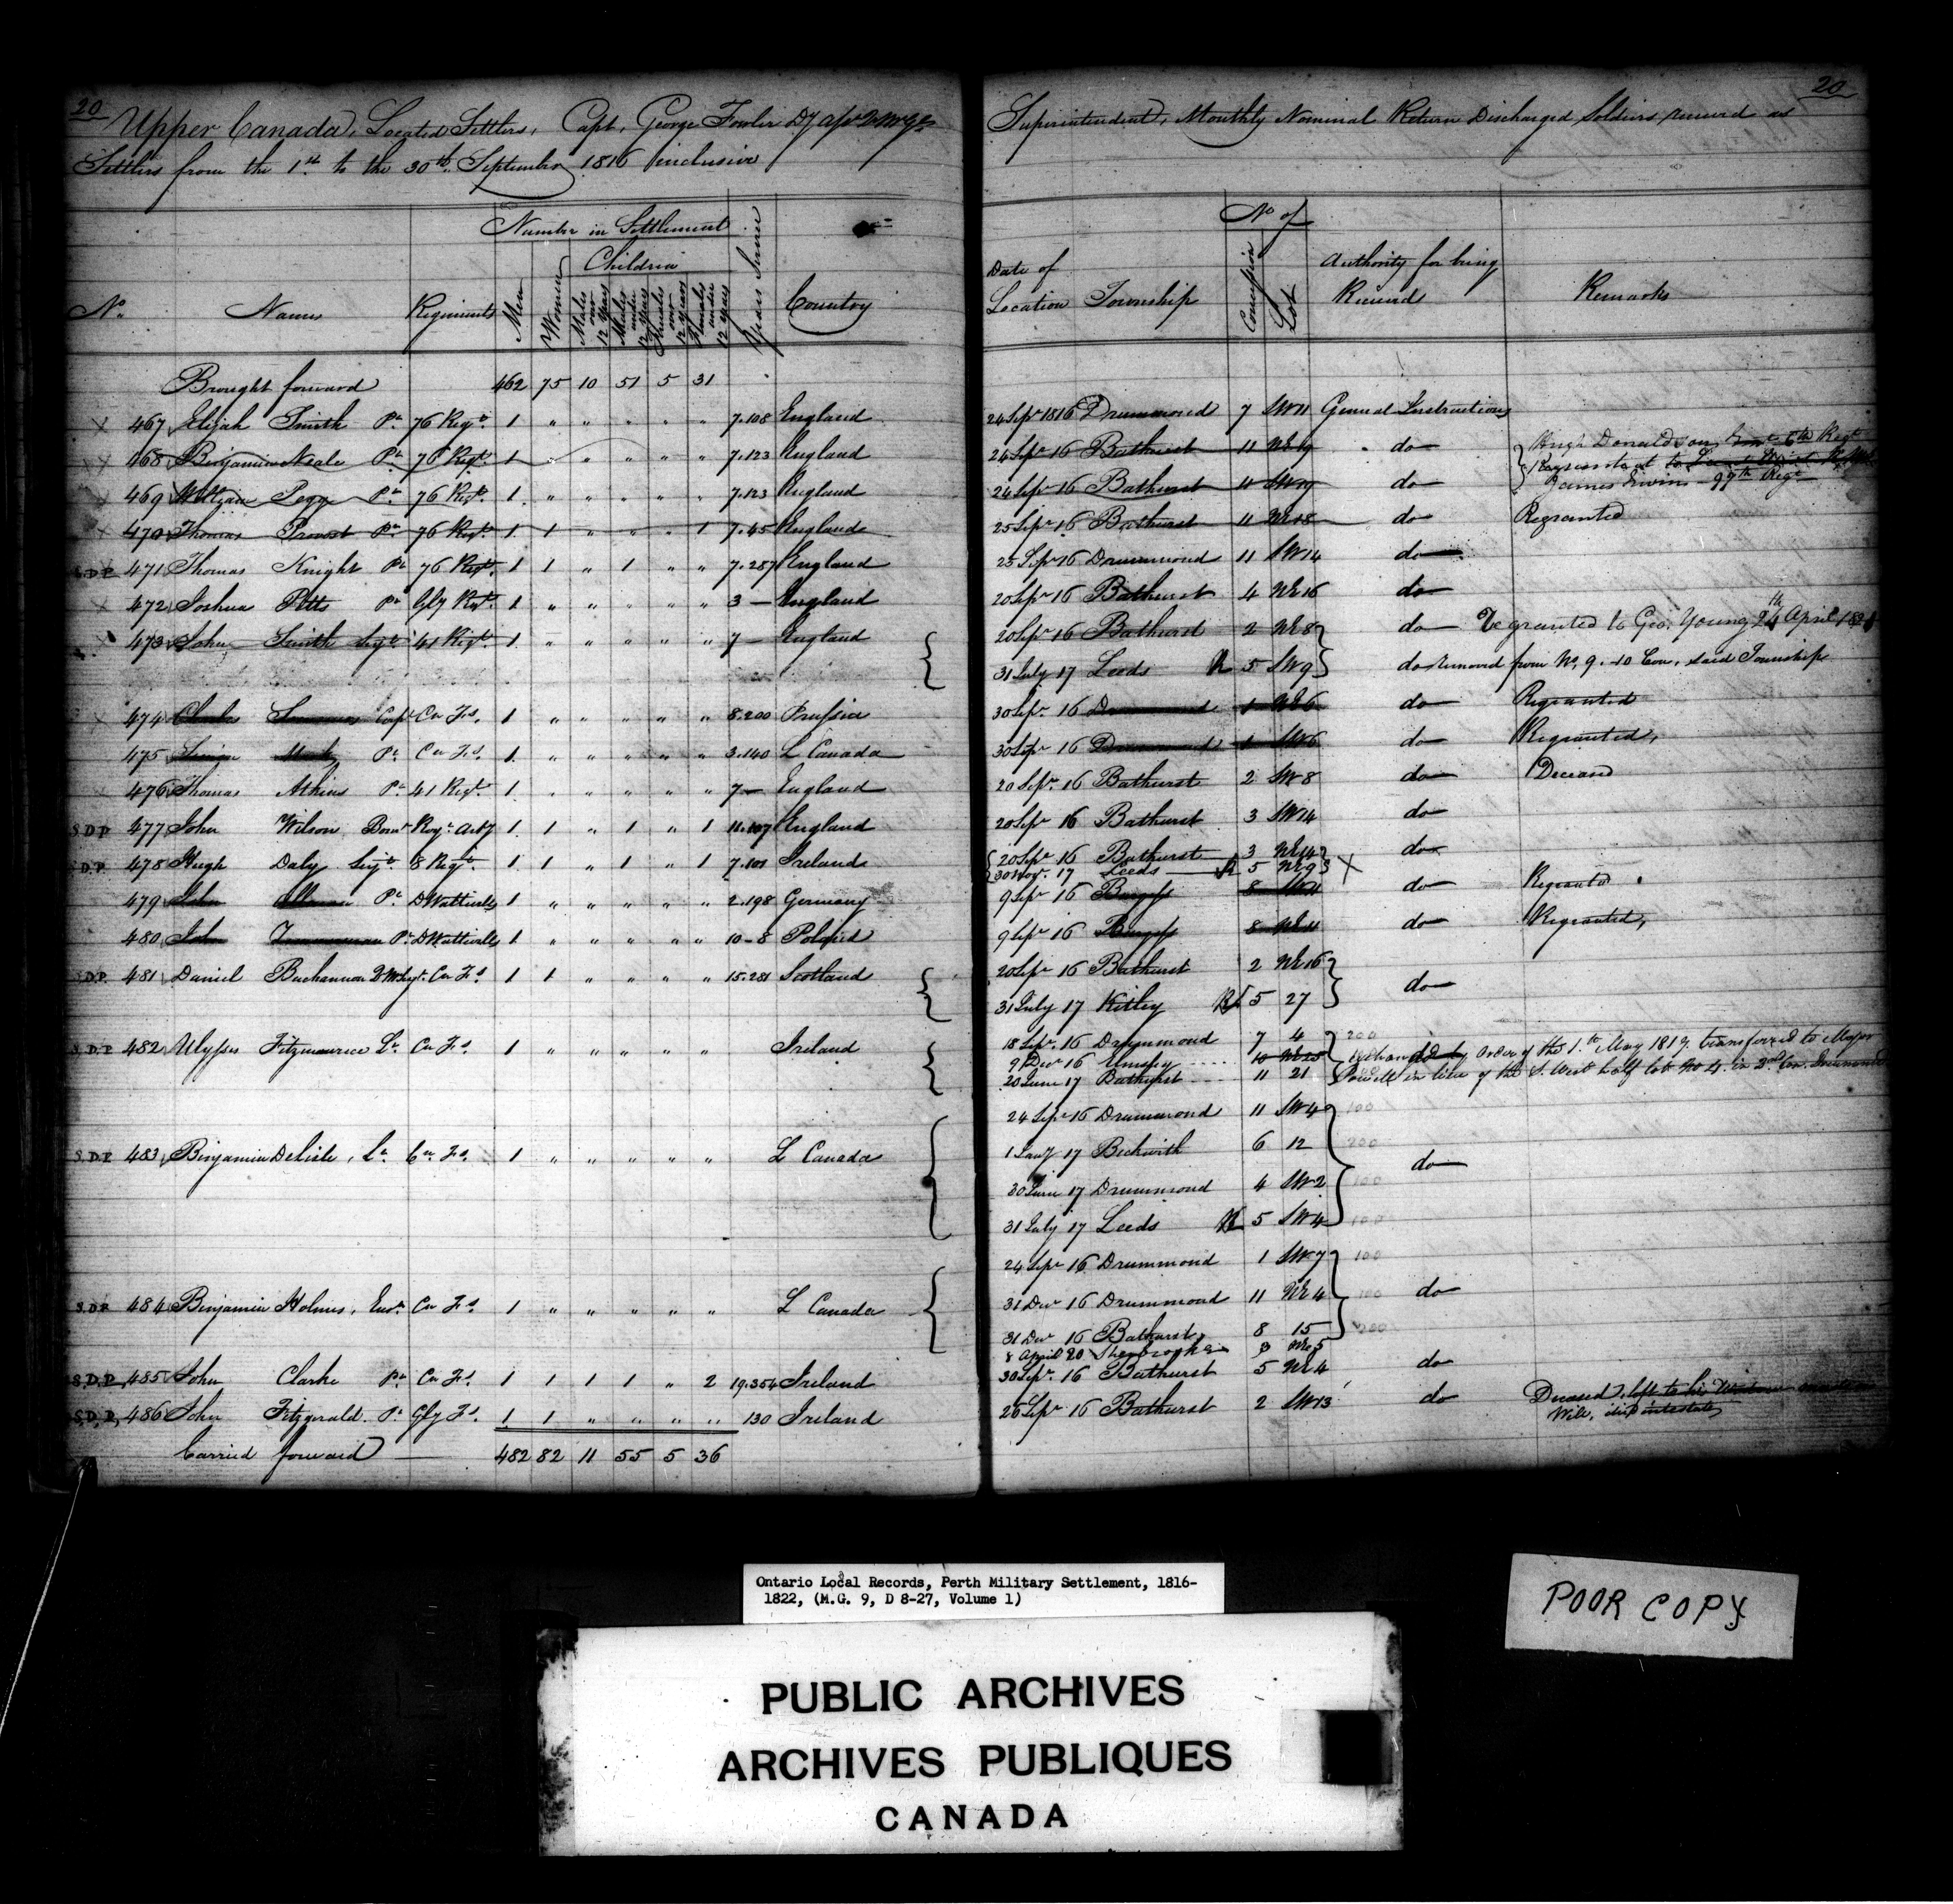 20
Upper Canada, Located Settlers, Capt. George Fowler
Settlers from the 1st to the 30th September 1816 inclusive
Number in Settlement
Children
No. Names Regiments Men Women Males over 12 Years Males under 12 Years Females over 12 Years Females under 12 Years Years Service Country
Brought forward 462 75 10 51 5 31
467 Elijah Smith Pt 76 Regt. 1 " " " " " 7.108 England
468 Benjamin Neale Pt 76 Regt. 1 " " " " " 7.123 England
469 William Pegg Pt 76 Regt. 1 " " " " " 7.123 England
470 Thomas Provost Pt 76 Regt. 1 1 " " " 1 7.45 England
S.D.P. 471 Thomas Knight Pt 76 Regt. 1 1 " 1 " " 7.287 England
472 Joshua Petts Pt Gly Regt. 1 " " " " " 3 — England
473 John Smith Sergt 41 Regt. 1 " " " " " 7 — England
474 Charles Capt Cn Fs. 1 " " " " " 8.200 Prussia
475 Pt Cn Fs 1 " " " " " 3.140 L Canada
476 Thomas Atkins Pt 41 Regt. 1 " " " " " 7 — England
S.D.P. 477 John Wilson Bomr Royl Arty 1 1 " 1 " 1 11.107 England
S.D.P. 478 Hugh Daly Serjt 8 Regt. 1 1 " 1 " 1 7.101 Ireland
479 John Pt DWatteville 1 " " " " " 2.198 Germany
480 John Pt DWatteville 1 " " " " " 10-8 Poland
S.D.P. 481 Daniel Buchannan QMSejt. Cn Fs 1 1 " " " " 15.281 Scotland
S.D.P. 482 Ulysses Fitzmaurice Lt Cn Fs 1 " " " " " Ireland
S.D.P. 483 Benjamin Delisle, Lt Cn Fs. 1 " " " " " L Canada
S.D.P. 484 Benjamin Holmes, Ensn Cn Fs 1 " " " " " L Canada
S.D.P. 485 John Clarke Pt Cn Fs. 1 1 1 1 " 2 19.354 Ireland
S.D.P. 486 John Fitzgerald. Pt Gly Fs. 1 1 " " " " 130 Ireland
Carried forward — 482 82 11 55 5 36
20
Superintendent, Monthly Nominal Return Discharged Soldiers received as
No of
Date of Location Township Concession Lot Authority for being Received Remarks
24 Sepr 1816 Drummond 7 SW11 General Instructions
24 Sepr 16 Bathurst 11 NE19 do Hugh Donaldson Regt
Regranted to
24 Sepr 16 Bathurst 11 SW19 do James Irwin 99th Regt
25 Sepr 16 Bathurst 11 NE18 do Regranted
25 Sepr 16 Drummond 11 SW14 do
20 Sepr 16 Bathurst 4 NE16 do
20 Sepr 16 Bathurst 2 NE8 do Regranted to Geo. Young 24th April 1821
31 July 17 Leeds R 5 SW9 do removed from No. 9. 10 Con. said Township
30 Sepr. 16 Drummond 1 NE6 do Regranted
30 Sepr 16 Drummond 1 SW6 do Regranted,
20 Sepr. 16 Bathurst 2 SW8 do Deceased
20 Sepr 16 Bathurst 3 SW14 do
20 Sepr 16 Bathurst 3 NE14 do
30 Novr. 17 Leeds R 5 NE9 X
9 Sepr 16 Burgess 8 SW11 do Regranted
9 Sepr 16 Burgess 8 NE11 do Regranted,
20 Sepr 16 Bathurst 2 NE16 do
31 July 17 Kitley R 5 27
18 Sepr. 16 Drummond 7 4 200
9 Decr 16 Elmsley 10 NE25 Exchanged by order of the 1st May 1819 transferred to Major
20 June 17 Bathurst 11 21 Powell in lieu of the S. West half lot No 4. in 2nd Con. Drummond
24 Sepr 16 Drummond 11 SW4 100
1 Jany 17 Beckwith 6 12 200 do
30 June 17 Drummond 4 SW2 100
31 July 17 Leeds R 5 SW4 100
24 Sepr 16 Drummond 1 SW7 100
31 Decr 16 Drummond 11 NE4 100 do
31 Decr 16 Bathurst 8 15 200
8 April 20 Sherbrooke 3 NE5
30 Sepr. 16 Bathurst 5 NE4 do
26 Sepr 16 Bathurst 2 SW13 do Deceased & left to his Widow
Will, died intestate
Ontario Local Records, Perth Military Settlement, 1816-
1822, (M.G. 9, D 8-27, Volume 1)
POOR COPY
PUBLIC ARCHIVES
ARCHIVES PUBLIQUES
CANADA